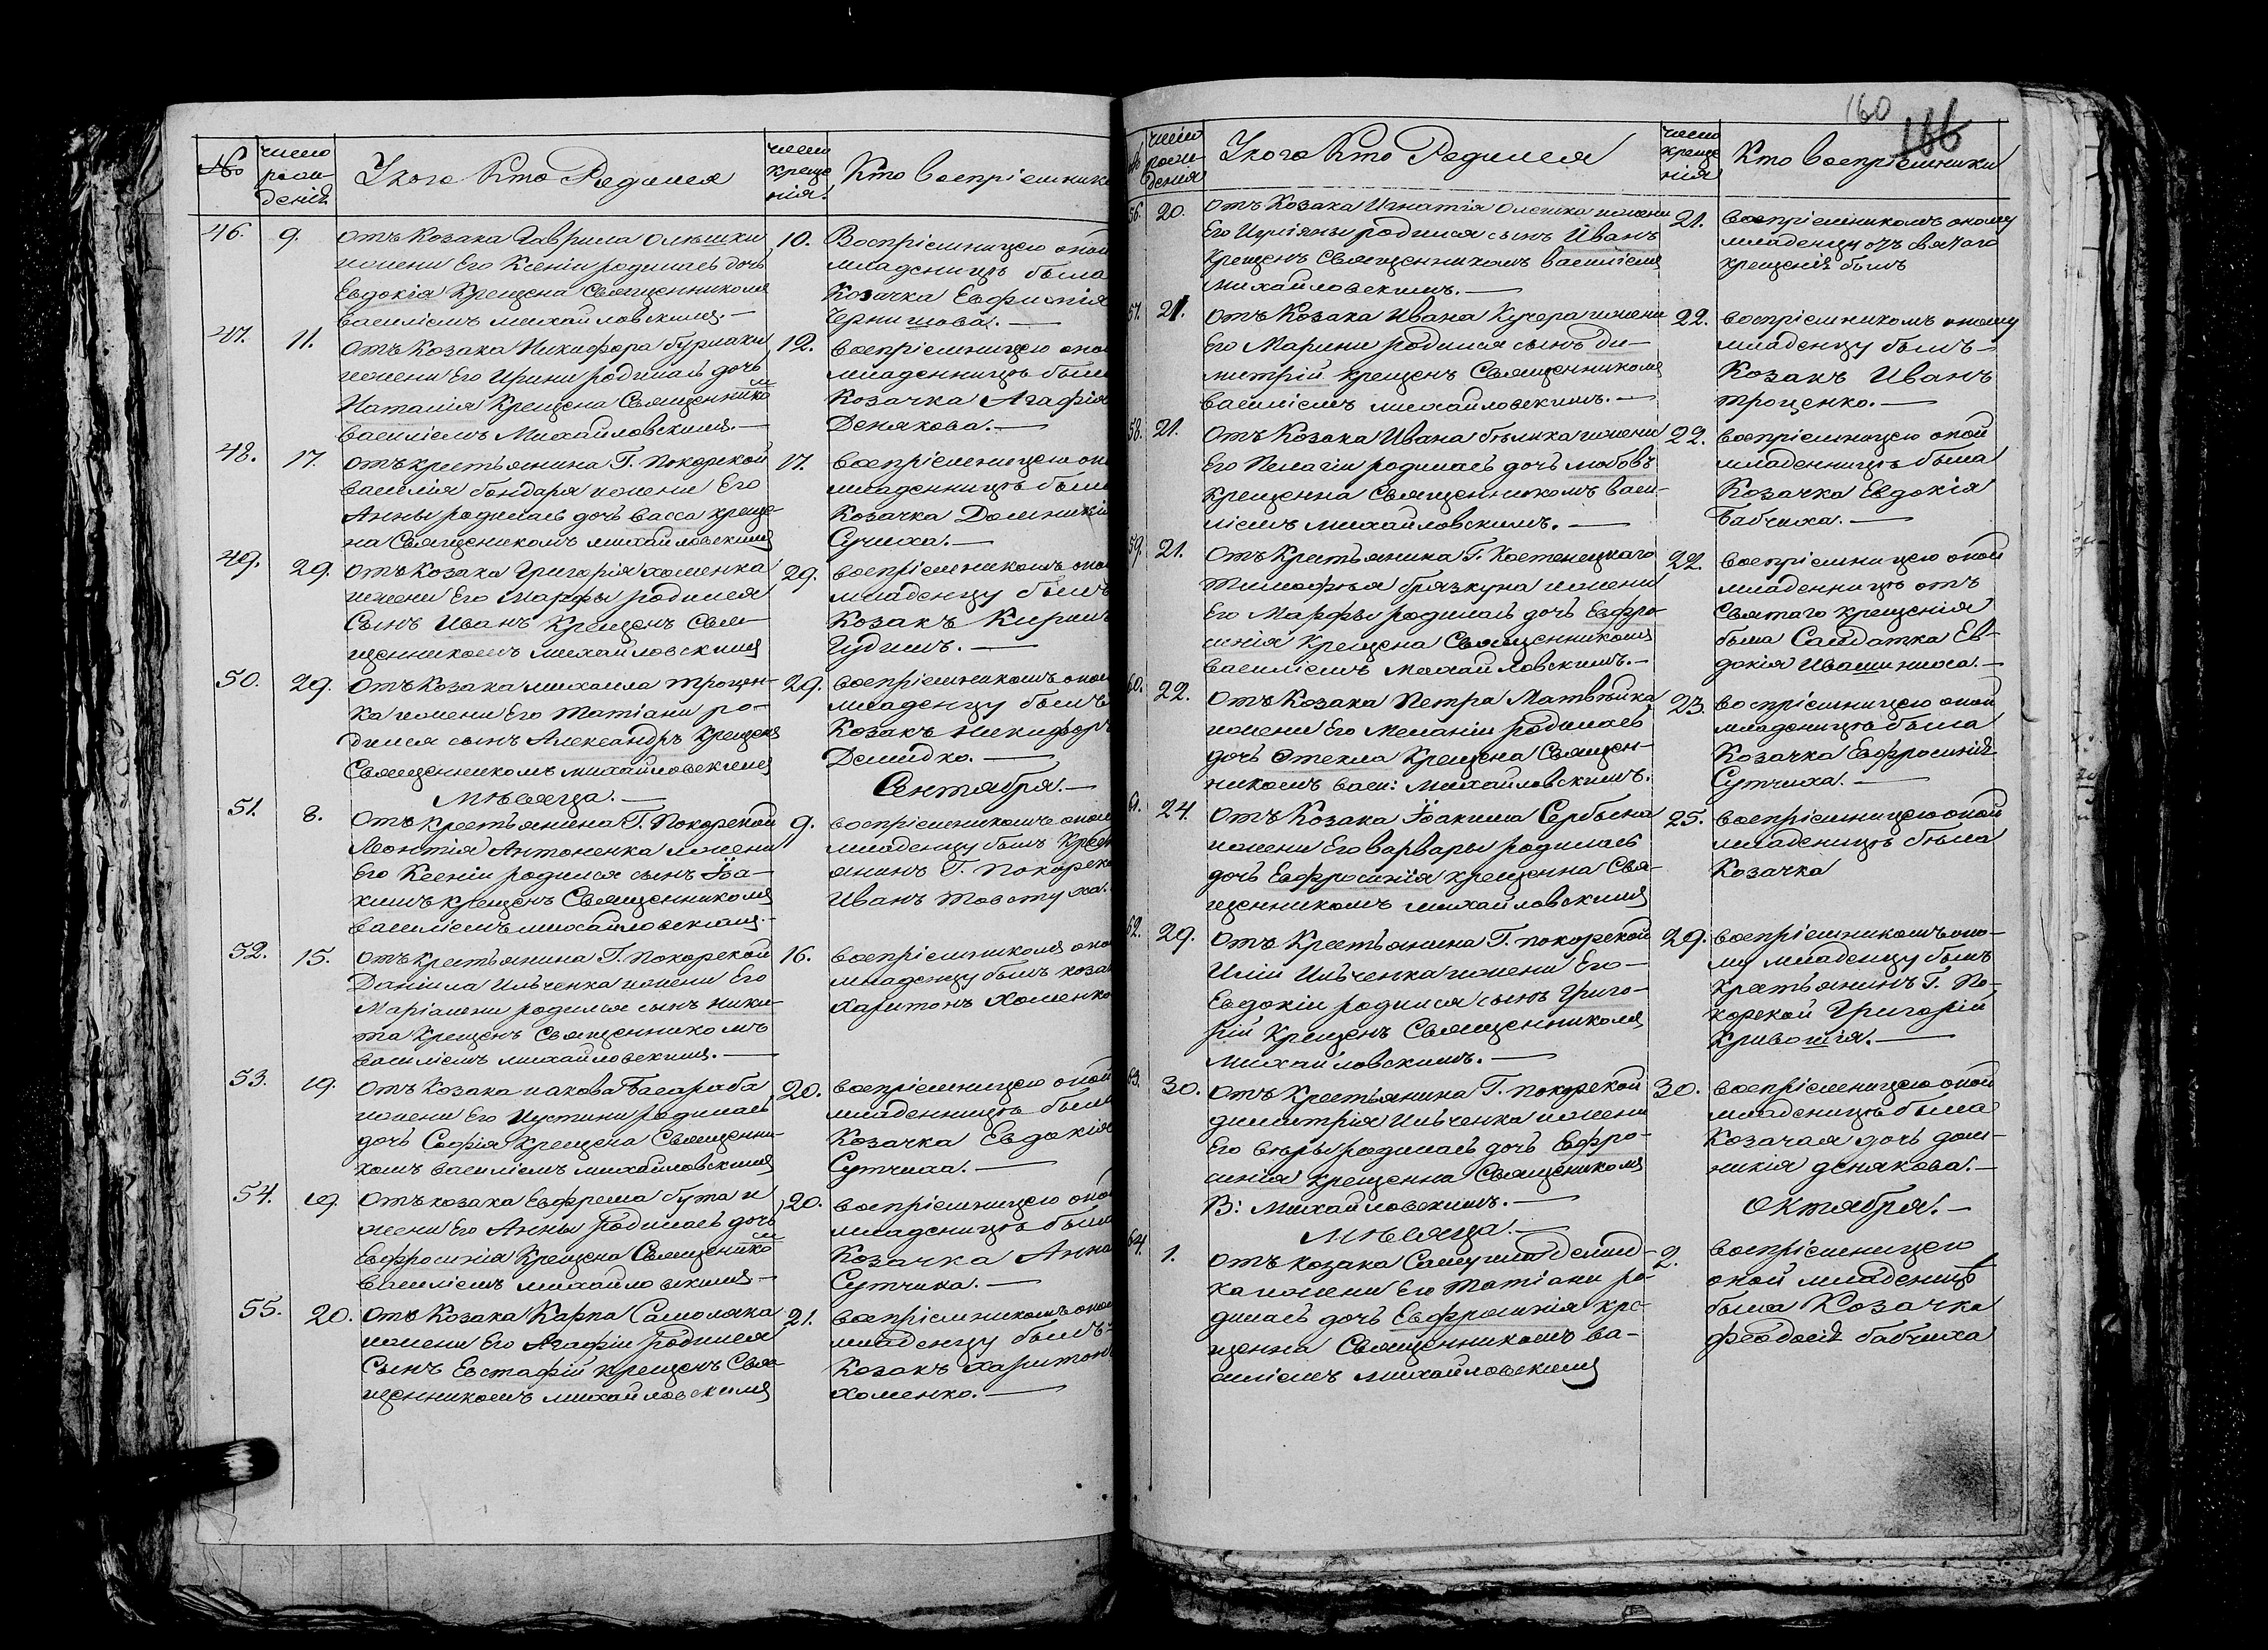 №
число
рож-
денія
У кого Кто Родился
число
креще
нія.
Кто воспріемники
46.
9.
отъ Козака Гаврила Олешки
ижени Его Ксеніи родилась дочь
Евдокія Крещена Священникомъ
василіемъ михайловскимъ. —
10.
Воспріемницею оной
младеницѣ была
Козачка Евфимія
Чернишова. —
47.
11.
отъ Козака Никифора бурлаки
ижени Его Ирини родилась дочь
Наталія Крещена Священнико
м
василіемъ Михайловскимъ. —
12.
воспріемницею оной
младенницѣ была
Козачка Агафія
Денякова. —
48.
17.
отъ крестьянина Г. Покорской
василія бондаря ижени Его
Анны родилась дочь васса креще-
на Священикомъ михайловскимъ
17.
воспріемницею
младенницѣ была
Козачка Домникія
Сучиха. —
49.
29.
отъ Козака Григорія хоменка
ижени Его Марфы родился
Сынъ Иванъ Крещенъ Свя-
щенникомъ михайловскимъ
29.
воспріемникомъ
младенцу былъ
Козакъ Кирилъ
Чудимъ. —
50.
29.
отъ Козака михаила трощен-
ка ижени Его татіани ро-
дился сынъ Александръ Крещенъ
Священникомъ михайловскимъ
29.
воспріемникомъ
младенцу былъ
Козакъ Никифоръ
Демидко. —
Мѣсяца. —
Сентября. —
51.
8.
отъ крестьянина Г. Покорской
Леонтія Антоненка ижени
Его Ксеніи родился сынъ Іоа-
кимъ крещенъ Священникомъ
василіемъ михайловскимъ. —
9.
воспріемникомъ
младенцу былъ крест
янинъ Г. Покорско
Иванъ товстуха.
52.
15.
отъ крестьянина Г. Покорской
Даніила Ильченка ижени Его
Маріамни родился сынъ ники-
та Крещенъ Священникомъ
василіемъ михайловскимъ. —
16.
воспріемникомъ
младенцу былъ козак
харитонъ Хоменко
53.
19.
отъ Козака иакова Басараба
ижени Его Иустини родилась
дочь Софія Крещена Священни-
комъ василіемъ михайловскимъ
20.
воспріемницею оной
младенницѣ была
Козачка Евдокія
Сутчиха. —
54.
19.
отъ козака Евфрема бута и
жени Его Анны Родилась дочь
Евфросинія Крещена Священнико
м
василіемъ михайловскимъ —
20.
воспріемницею оной
младеницѣ была
Козачка Анна
Сутчиха. —
55.
20.
отъ Козака Карпа Самоляка
ижени Его Агафіи Родился
Сынъ Евстафій крещенъ Свя-
щенникомъ михайловскимъ
21.
воспріемникомъ
младенцу былъ —
Козакъ Харитонъ
Хоменко. —
160
166
№
число
рож-
денія
У кого Кто Родился
число
креще
нія
Кто воспріемники
56.
20.
отъ Козака Игнатія Олешка ижени
Его Иуліяны родился сынъ Иванъ
Крещенъ Священникомъ василіемъ
михайловскимъ. —
21.
воспріемникомъ оному
младенцу отъ святаго
крещенія былъ
57.
21.
отъ Козака Ивана Кучера ижени
Его Марини родился сынъ Ди-
митрій крещенъ Священникомъ
василіемъ михайловскимъ. —
22.
воспріемникомъ оному
младенцу былъ —
Козакъ Иванъ
троценко. —
58.
21.
отъ Козака Ивана бѣлика ижени
Его Пелагіи родилась дочь любовь
Крещенна Священникомъ васи-
ліемъ михайловскимъ. —
22.
воспріемницею оной
младенницѣ была
Козачка Евдокія
Бабчиха. —
59.
21.
отъ Крестьянина Г. Костенецкаго
тимофѣя брязкуна ижени
Его Марфы родилась дочь Евфро-
синія Крещена Священникомъ
василіемъ Михайловскимъ. —
22.
воспріемницею оной
младенницѣ отъ
Святаго крещенія
была Салдатка Ев-
докія Ивашиниха. —
60.
22.
отъ Козака Петра Матвѣйка
ижени Его Меланіи родилась
дочь Ѳтекла Крещена Священ-
никомъ васи: Михайловскимъ.
23.
воспріемницею оной
младеницѣ была
Козачка Евфросинія
Сутчиха. —
61.
24.
отъ Козака Іоакима Сербина
ижени Его варвары родилась
дочь Евфросинія крещенна Свя-
щенникомъ михайловскимъ
25.
воспріемницею оной
младенницѣ была
Козачка
62.
29.
отъ Крестьянина Г. покорской
Иліи Ильченка ижени Его —
Евдокіи родился сынъ Григо-
рій Крещенъ Священникомъ
михайловскимъ. —
29.
воспріемникомъ оно-
му младенцу былъ
крестьянинъ Г. По-
корской Григорій
Кривошія. —
63.
30.
отъ Крестьянина Г. покорской
димитрія Ильченка ижени
Его вѣры родилась дочь Евфро-
синія крещенна Священикомъ
В: Михайловскимъ. —
30.
воспріемницею оной
младеницѣ была
Козачая дочь дом-
никія денякова. —
Мѣсяца. —
Октября. —
64.
1.
отъ козака Самуила демид-
ка ижени Его татіани ро-
дилась дочь Евфросинія кре-
щенна Священникомъ ва-
силіемъ михайловскимъ
2.
воспріемницею
оной младеницѣ
была Козачка
феодосія бабчиха